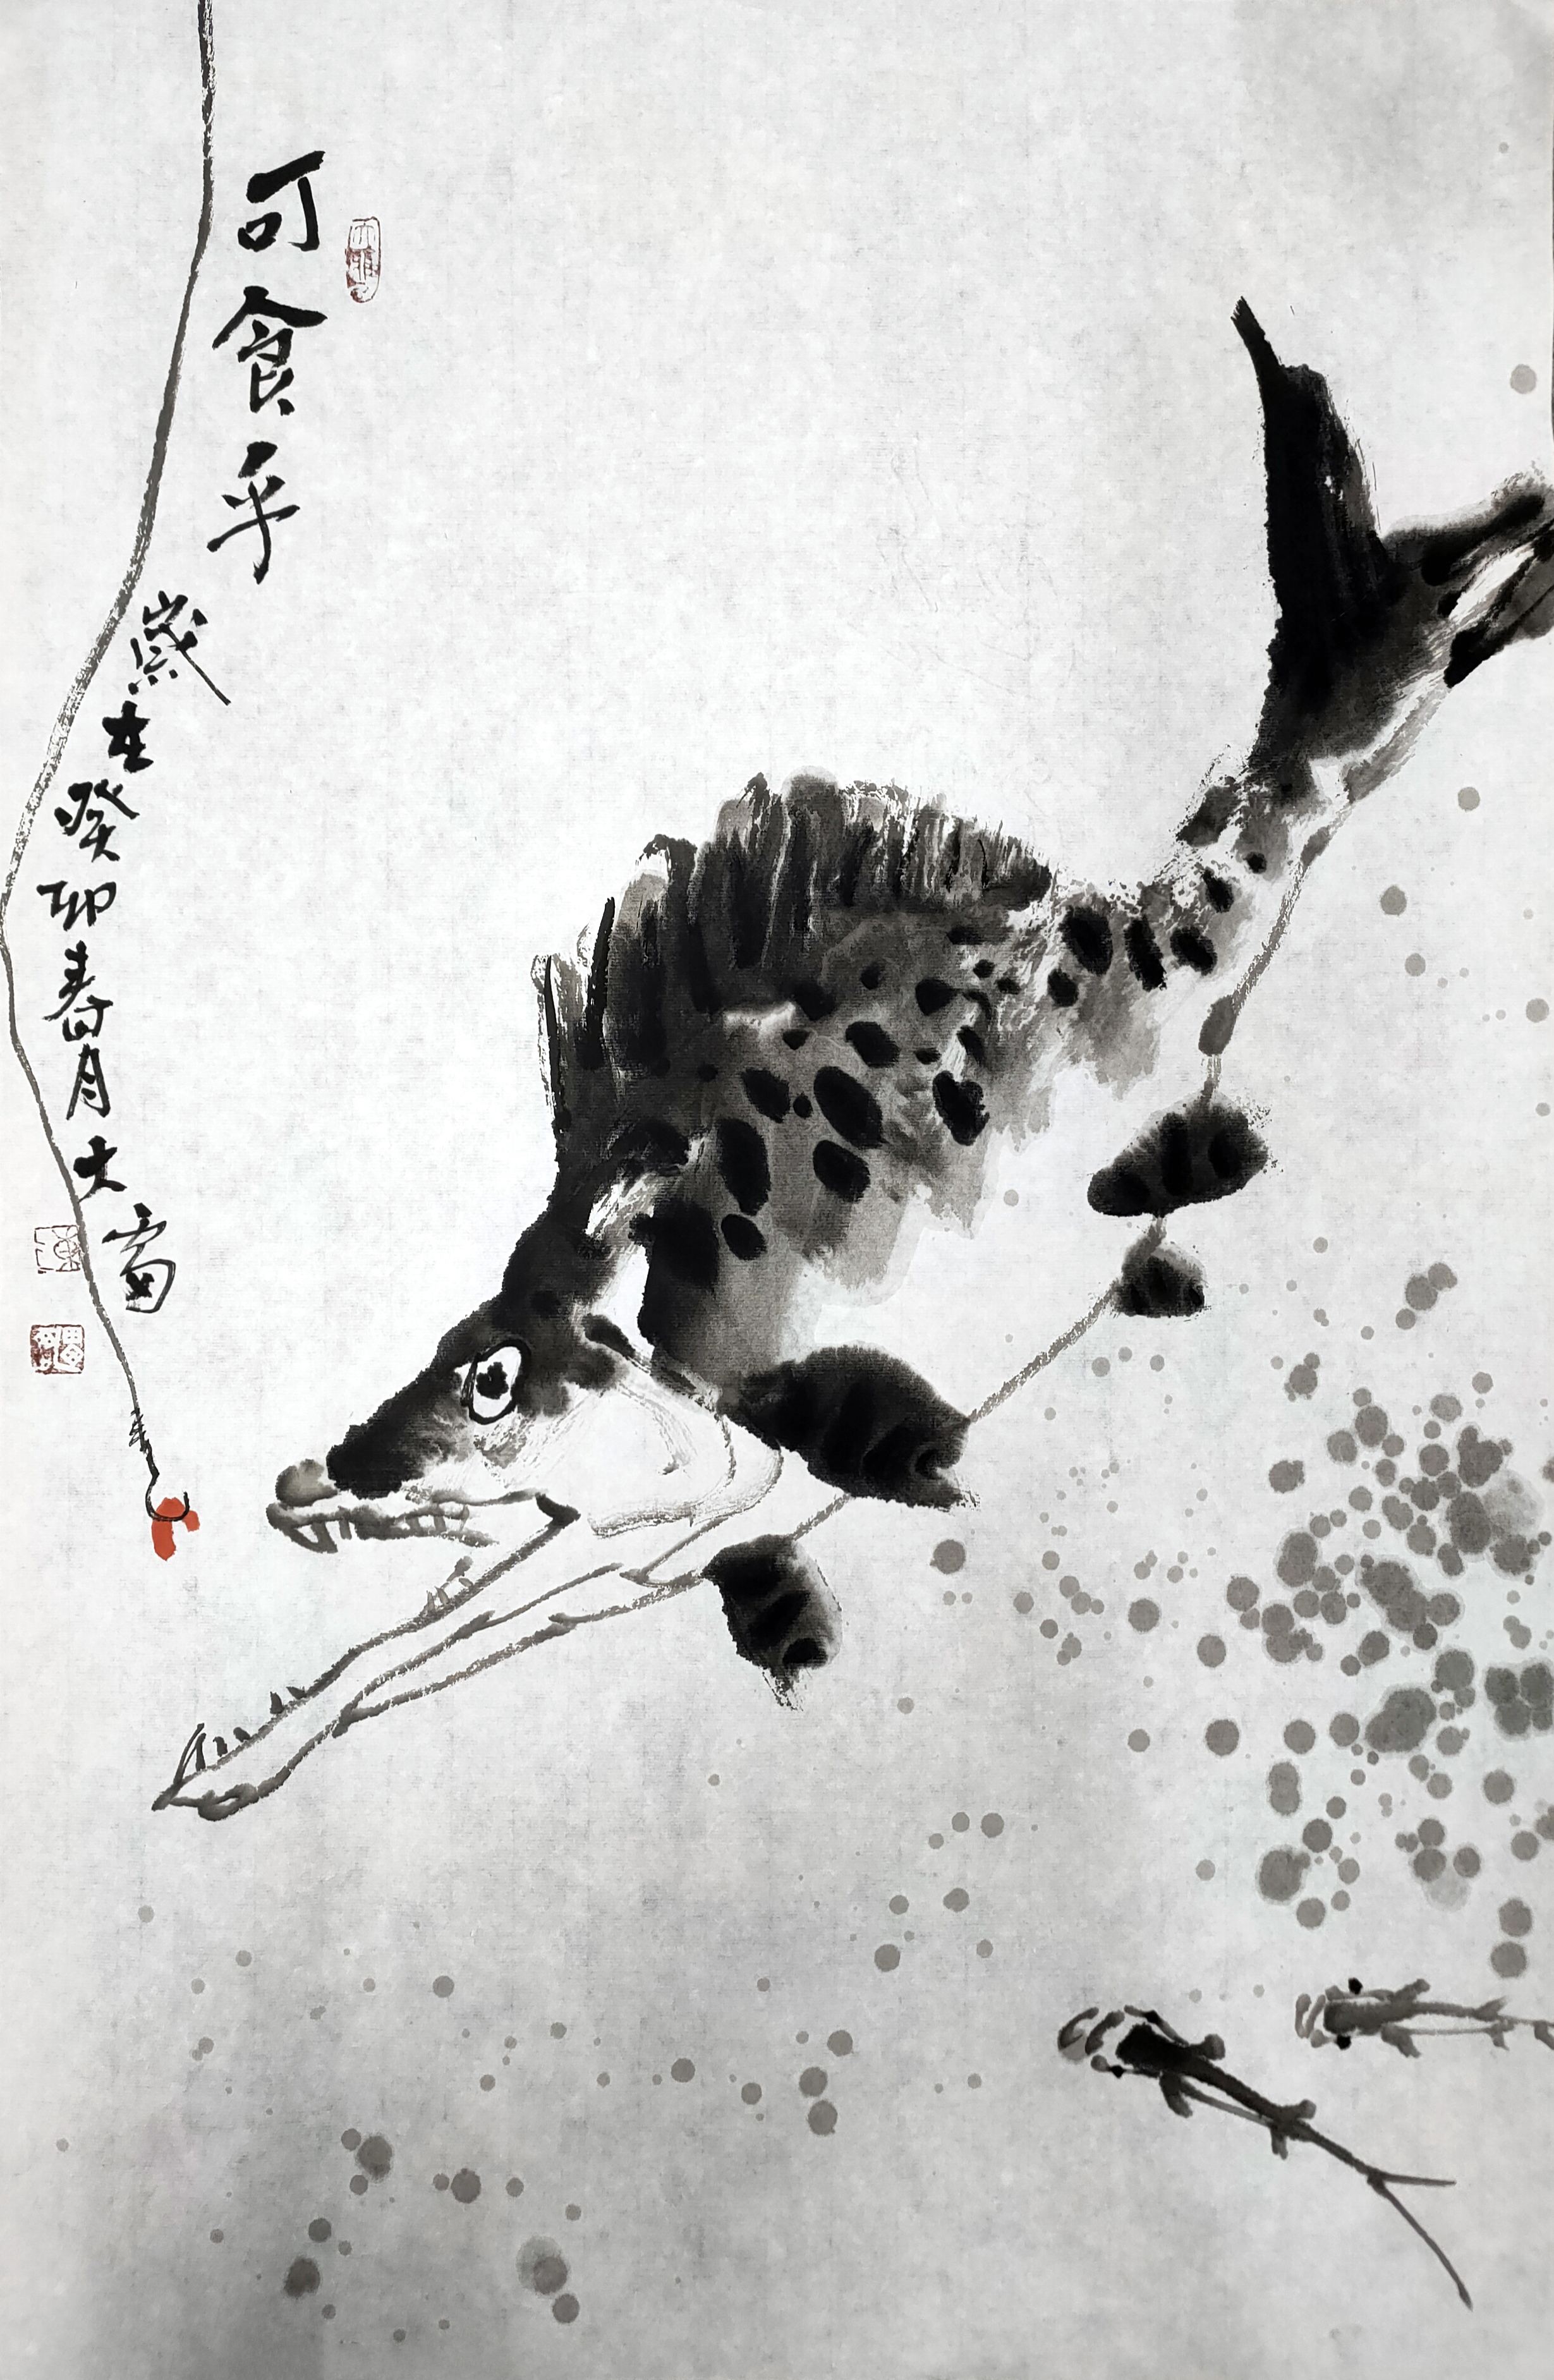 可食乎
歲在癸卯春月大